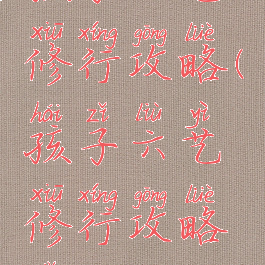 xiū xíng gōng lüè
修行攻略(
hái zǐ liù yì
孩子六艺
xiū xíng gōng lüè
修行攻略